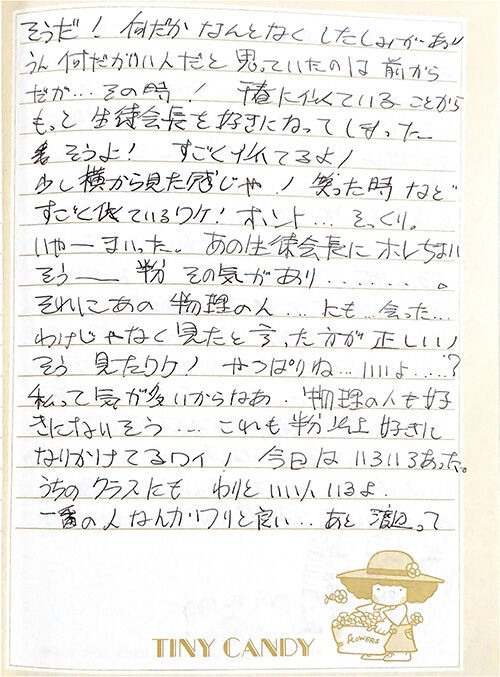 そうだ！何だか なんとなく したしみがあり
うん 何だかいい人だと 思っていたのは 前から
だが…その時！ に似ている ことから
もっと 生徒会長を好きになってしまった
そうよ！ すごく似てるよ！
少し横から見た感じや！ 笑った時など
すごく似ているワケ！ホント…そっくり。
いやーまいった。あの生徒会長にホレちまい
そう── その気があり……。
それにあの 物理の人…にも…会った…
わけじゃなく 見たと言った方が正しい！
そう 見たワケ！ やっぱりね…いいよ…？
私って気が多いからなあ．物理の人も好
きになりそう…これも 半分以上 好きに
なりかけてるワイ！ 今日は いろいろあった。
うちの クラスにも わりと いい人いるよ．
一番の人なんかワリと良い…あと 渡辺って
FLOWERS
TINY CANDY